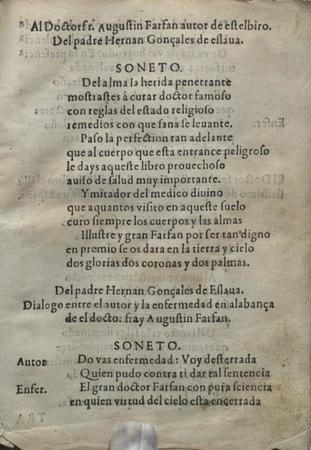 Al Doctor fr. Augustin Farfan autor de este libro.
Del padre Hernan Gonçales de eslaua.
SONETO.
Del alma la herida penetrante
mostrastes à curar doctor famoso
con reglas del estado religioso
remedios con que sana se leuante.
Paso la perfection tan adelante
que al cuerpo que esta entrance peligroso
le days aqueste libro prouechoso
auiso de salud muy importante.
Ymitador del medico diuino
que aquantos visito en aqueste suelo
curo siempre los cuerpos y las almas
Illustre y gran Farfan por ser tan digno
en premio se os dara en la tierra y cielo
dos glorias dos coronas y dos palmas.
Del padre Hernan Gonçales de Eslaua.
Dialogo entre el autor y la enfermedad en alabança
de el doctor fray Augustin Farfan.
SONETO.
Autor. Do vas enfermedad: Voy desterrada
Quien pudo contra ti dar tal sentencia
Enfer. El gran doctor Farfan con pura sciencia
en quien virtud del cielo esta encerrada